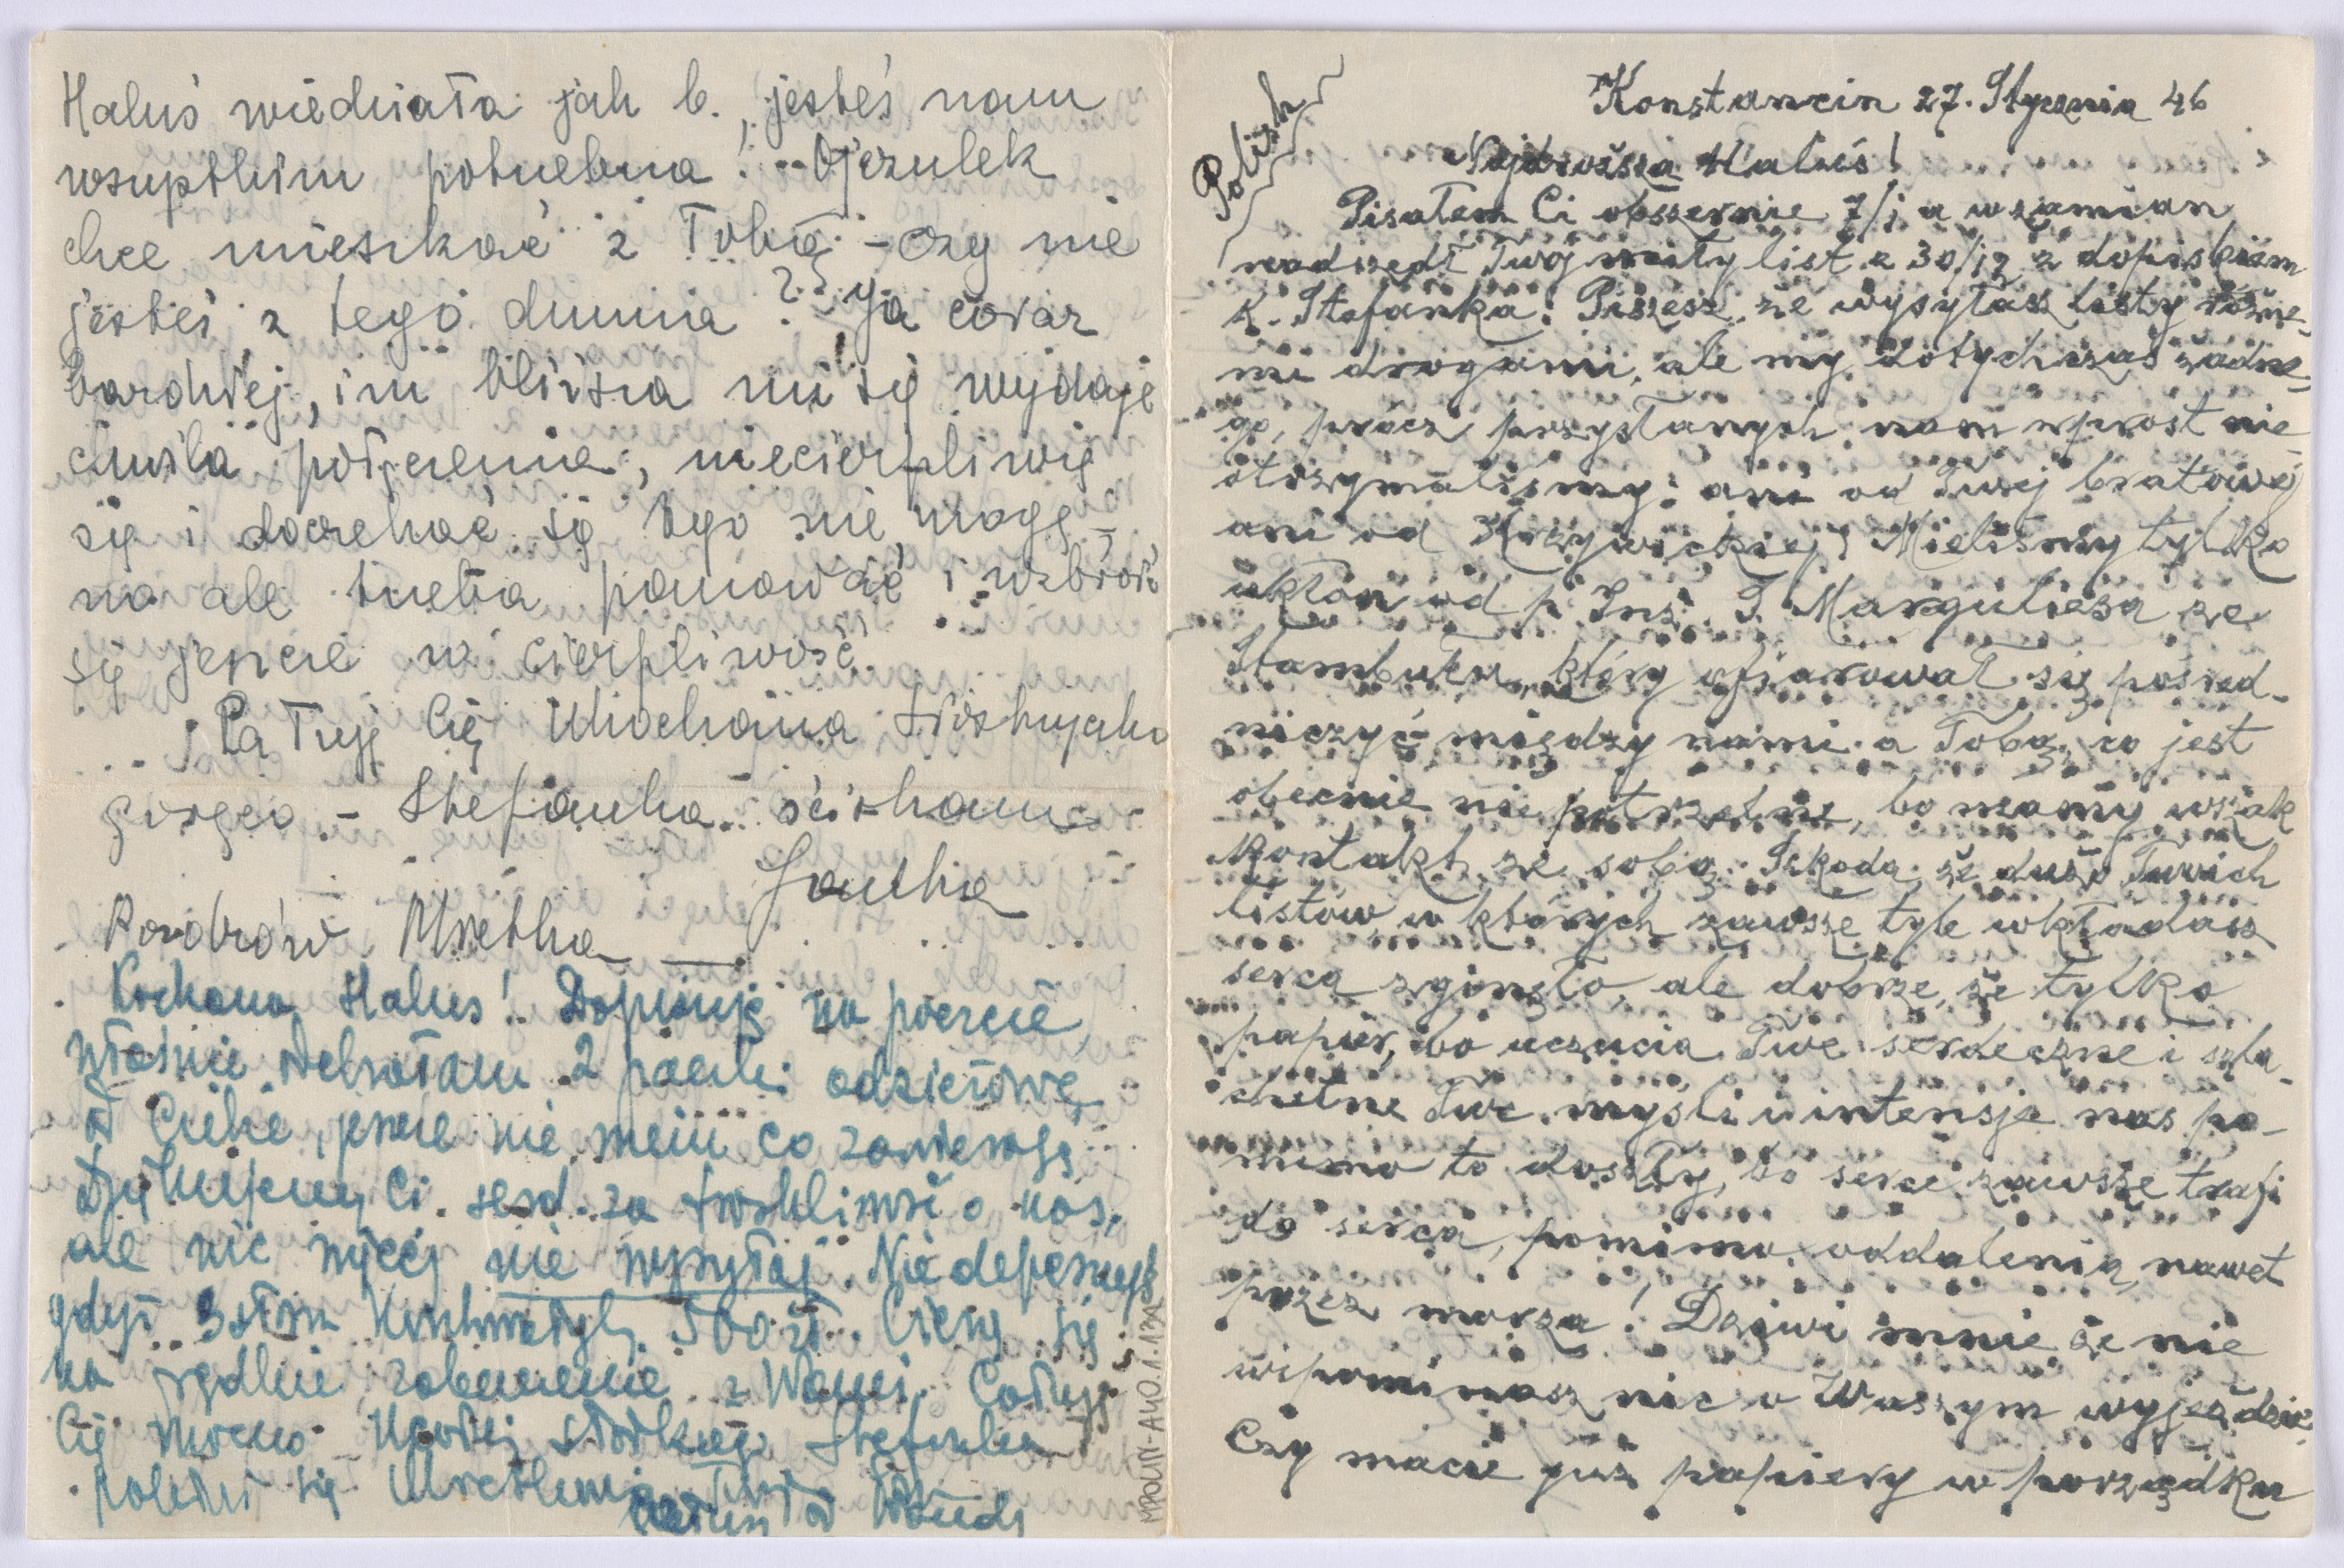 Haluś wiedziała jak b. jesteś nam
wszystkim potrzebna! - Ojczulek
chce mieszkać z Tobą - czy nie
jesteś z tego dumna? Ja coraz
bardziej, im bliższa mi się wydaje
chwila połączenia, niecierpliwię
się i doczekać się tego nie mogę -
no ale trzeba panować i uzbroić
się jeszcze w cierpliwość.
Całuję Cię Ukochana
gorąco - Stefanka ściskam
Janka
Pozdrów Mietka
Kochana Haluś! Dopisuję na poczcie,
właśnie odebrałam 2 paczki odzieżowe
od Ciebie, jeszcze nie wiem co zawierają
Dziękujemy Ci serd. za troskliwość o nas,
ale nic więcej nie wysyłaj. Nie depeszuję
gdyż 3 słowa kosztowałyby 500 zł. Cieszę się
na prędkie zobaczenie z Wami. Całuję
Cię mocno Stefanka
od Wandy
MPOLIN-A40.1.13A
Polish
Konstancin 27. Stycznia 46
Najdroższa Haluś!
Pisałem Ci obszernie 7/I a wzamian
nadszedł Twój miły list z 30/12 z dopiskiem
k. Stefanka. Piszesz, że wysyłasz listy różne-
mi drogami, ale my dotychczas żadne-
go, prócz przysłanych nam wprost nie
otrzymaliśmy: ani od Twej bratowej
ani od Krzywickiej! Mieliśmy tylko
ukłon od p. Inż. I. Marguliesa ze
Stambułu, który ofiarował się pośred-
niczyć między nami a Tobą, co jest
obecnie nie potrzebne, bo mamy wszak
kontakt ze sobą. Szkoda, że dużo Twoich
listów, w których zawsze tyle wkładasz
serca zginęło, ale dobrze, że tylko
papier, bo uczucia Twe serdeczne i szla-
chetne Twe myśli i intensje nas po-
mimo to doszły, bo serce zawsze trafi
do serca, pomimo oddalenia, nawet
przez morza! Dziwi mnie że nie
wspominasz nic o Waszym wyjeździe
Czy macie już papiery w porządku